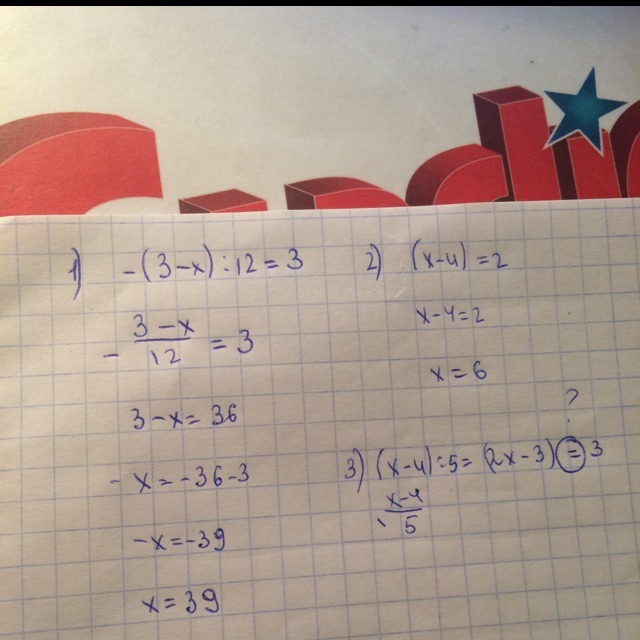 1) -(3-x):12=3
- 3-x/12 = 3
3-x=36
-x=-36-3
-x=-39
x=39
2) (x-4)=2
x-4=2
x=6
?
3) (x-4):5=(2x-3)=3
x-4/5